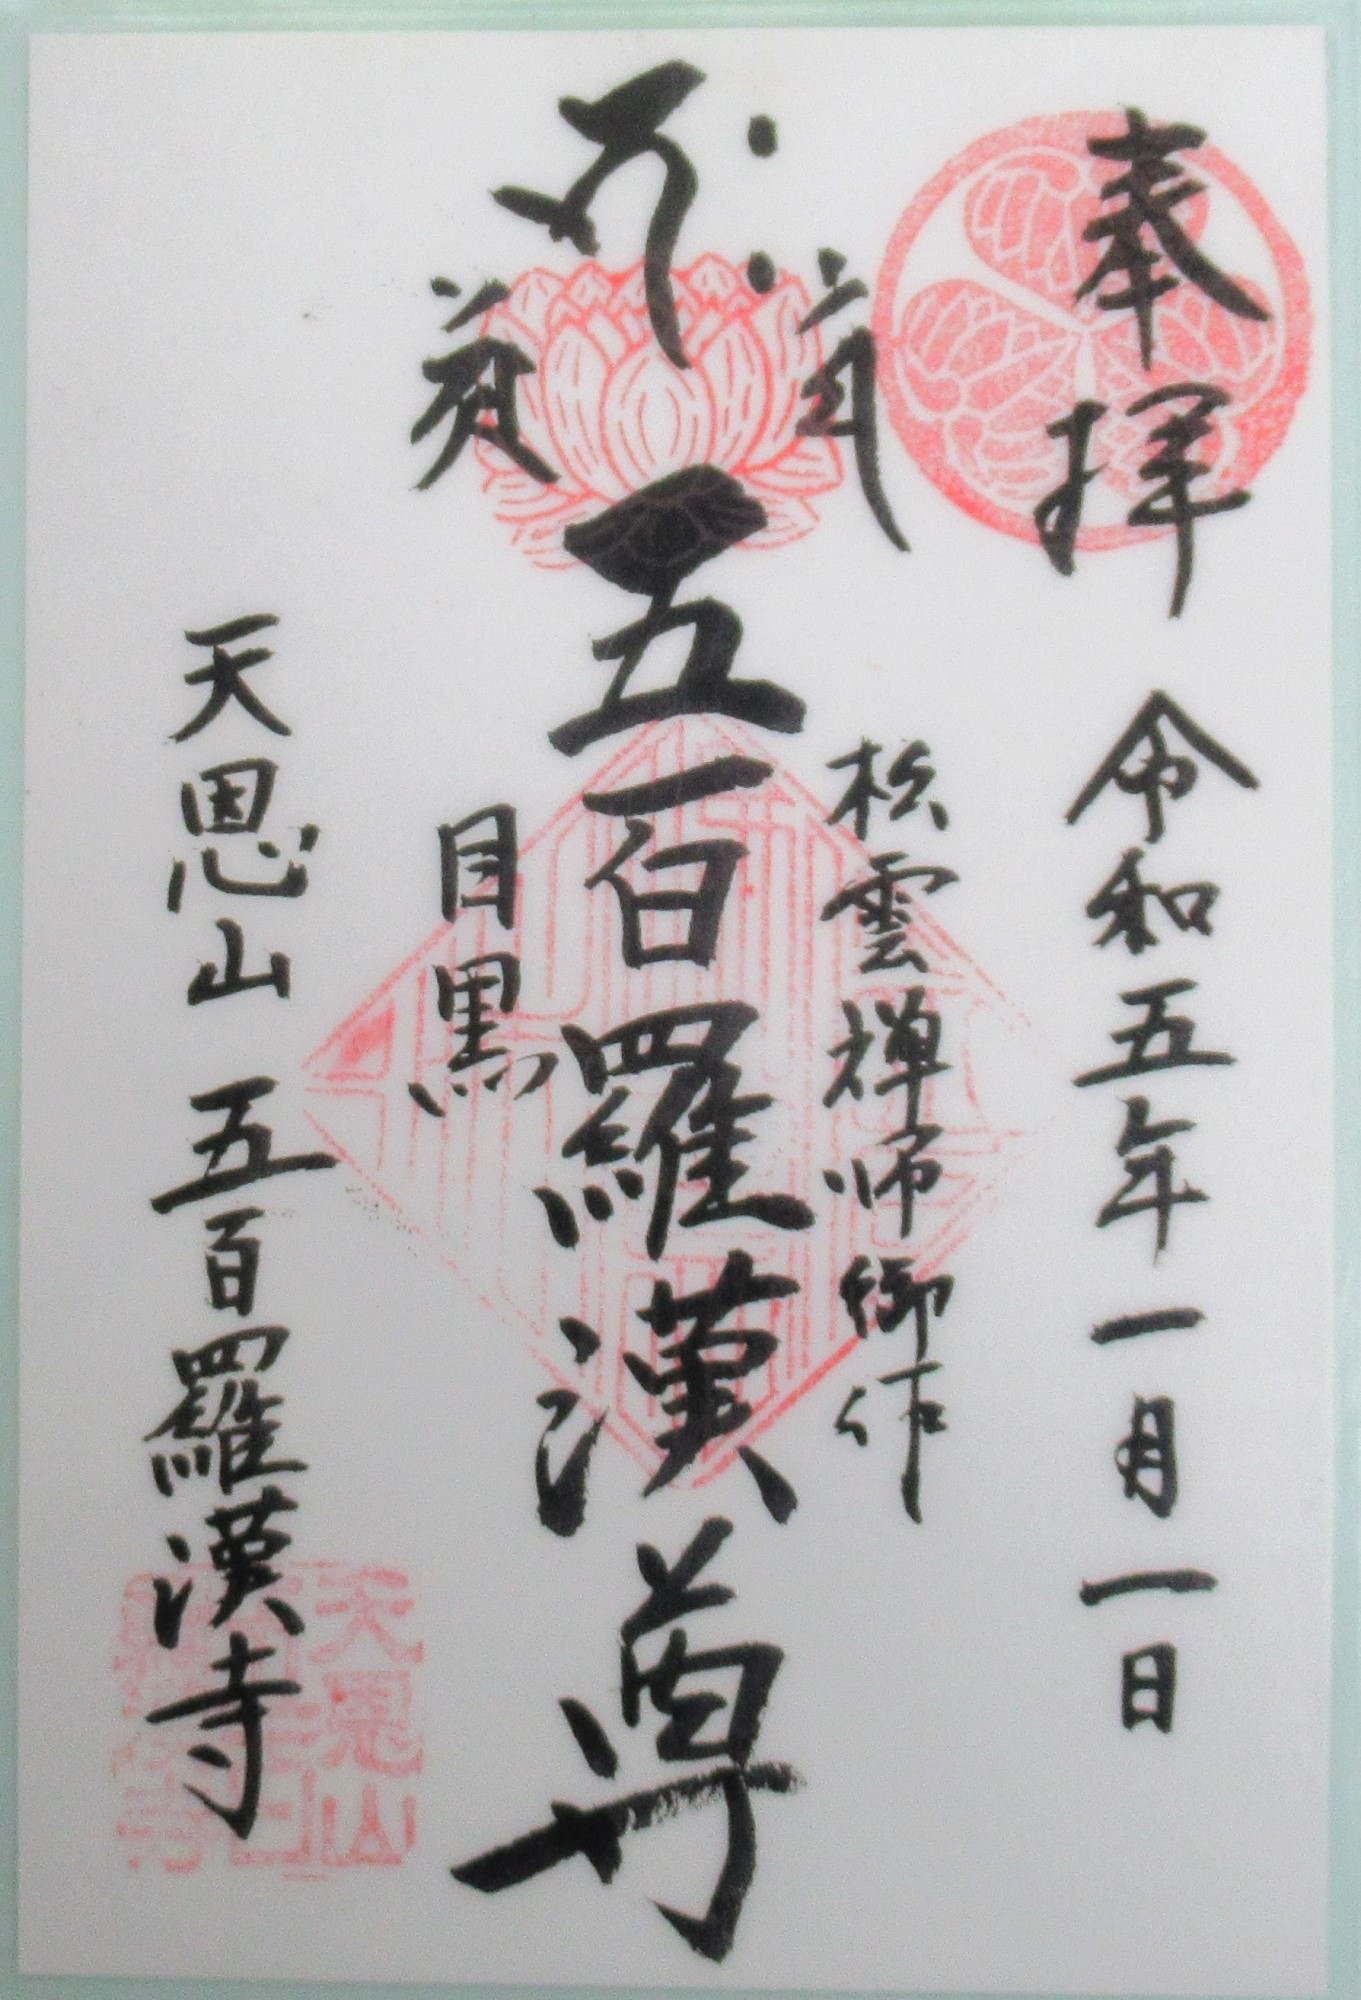 奉拝 令和五年一月一日
松雲禅師御作
五百羅漢尊
目黒
天恩山 五百羅漢寺
天恩山